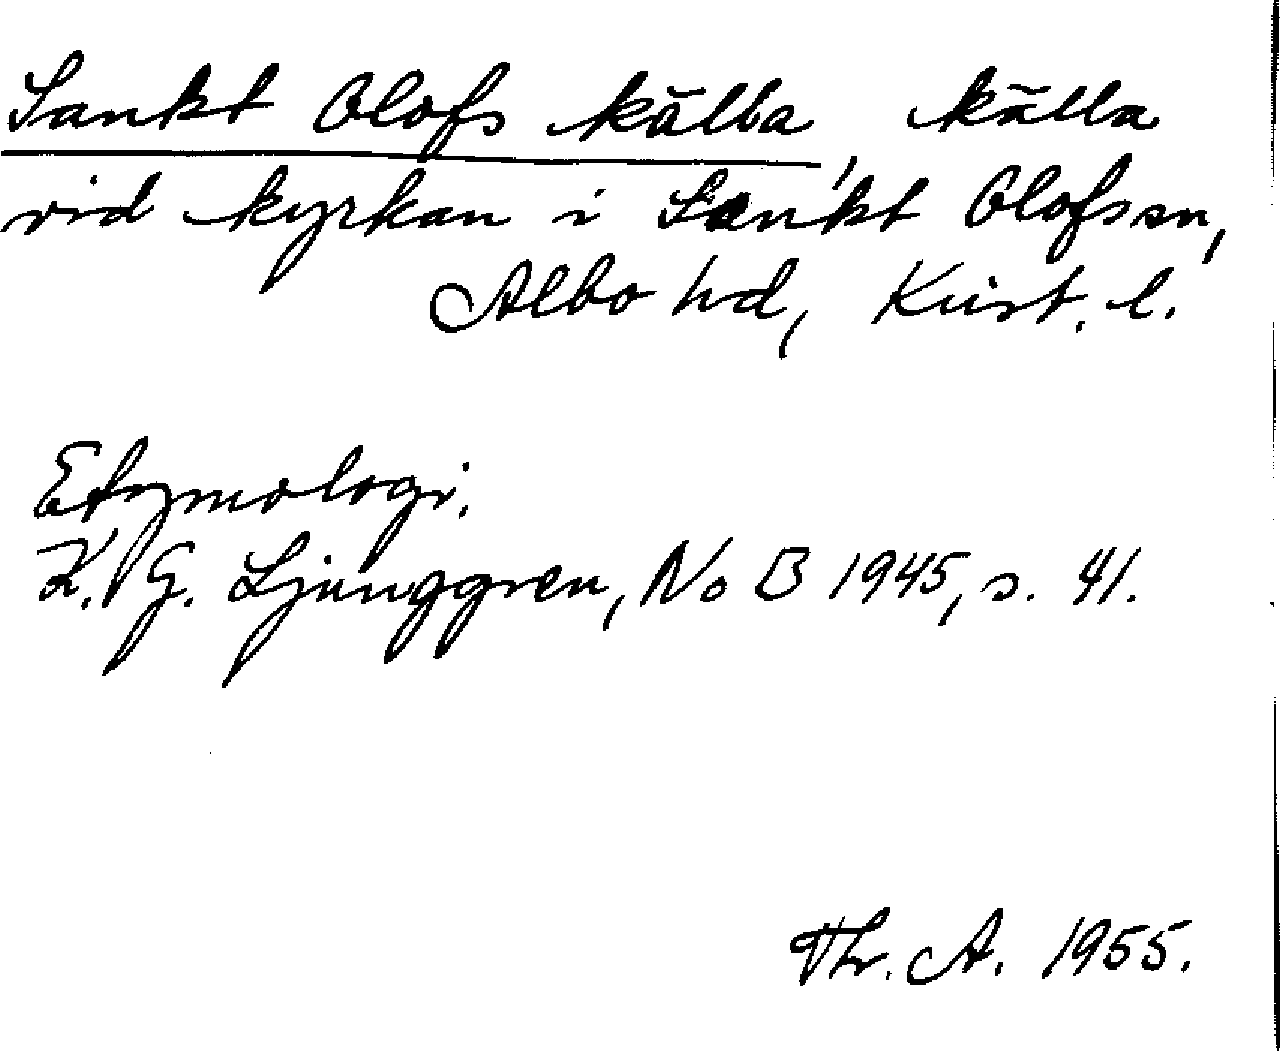 Sankt Olofs källa, källa
vid kyrkan i Sankt Olofs sn,
Albo hd, Krist. l.
Etymologi.
K. G. Ljunggren, No B 1945, s. 41.
Thr. A. 1955.